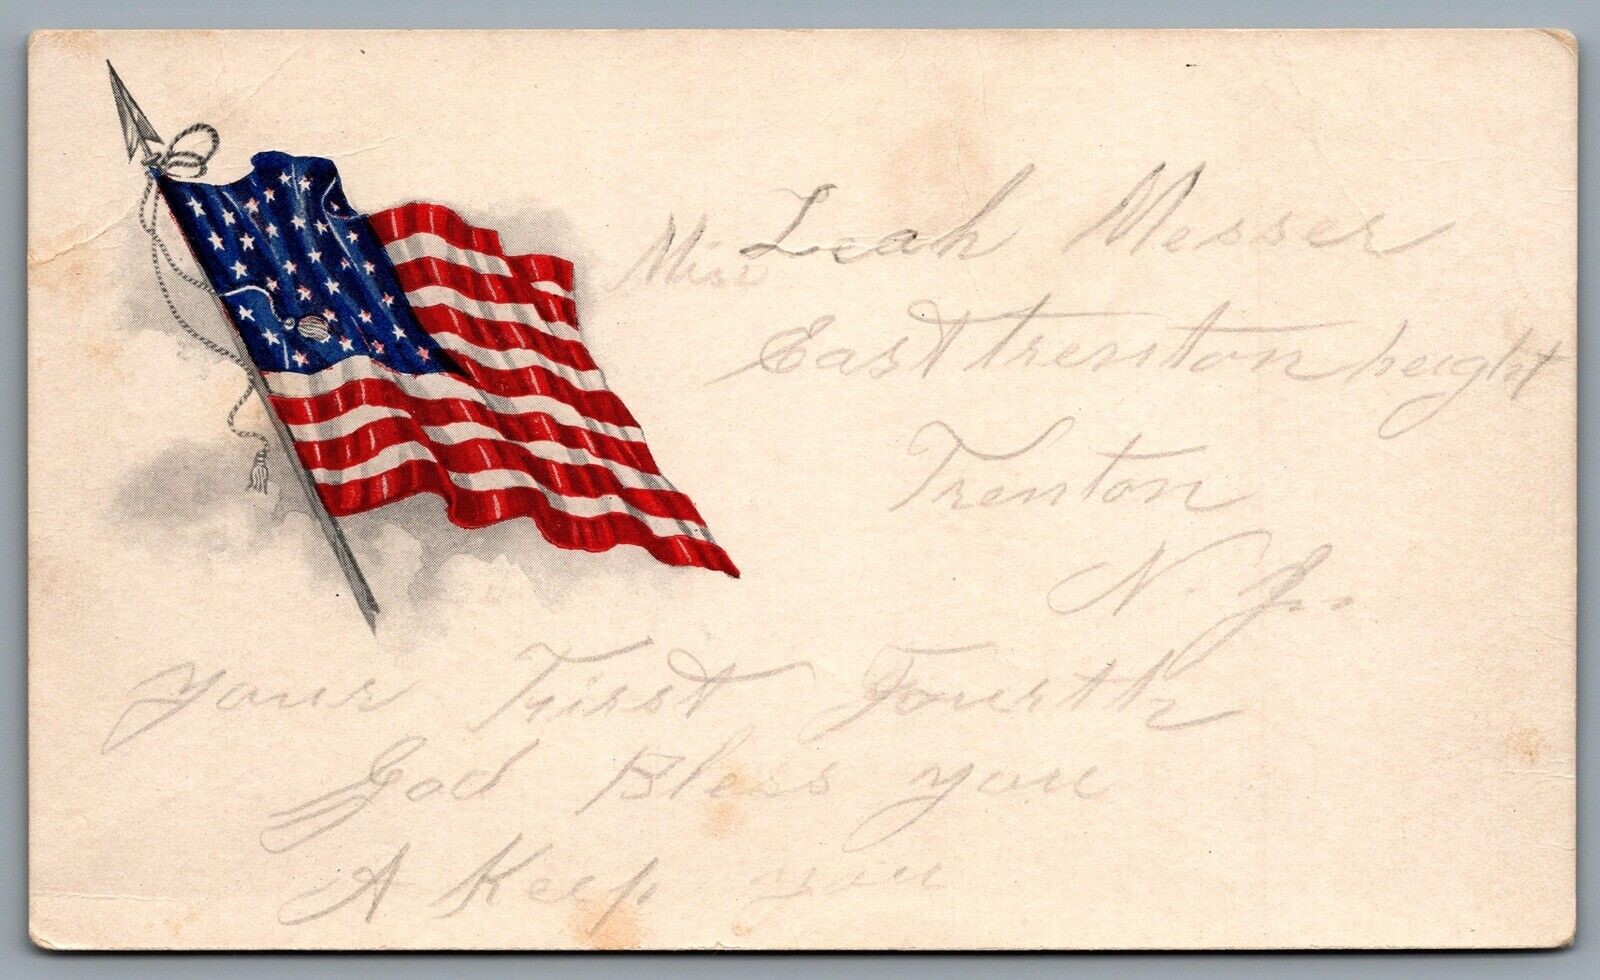 Miss Leah Messer
East trenton height
Trenton
N. J.
your First Fourth
God Bless you
A Keep you